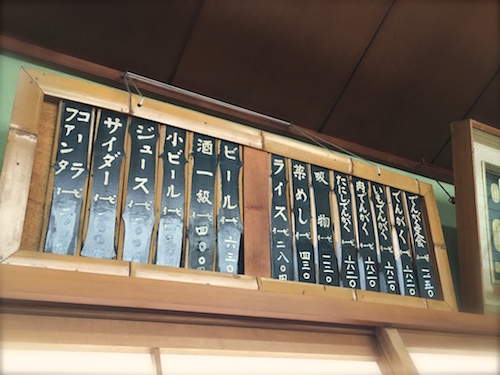 でんがく定食 一二五〇
でんがく 六二〇
いもでんがく 六二〇
肉でんがく 六二〇
だしでんがく 六二〇
吸物 一二〇
菜めし 四三〇
ライス 二八〇円
ビール 六三〇
酒一級 四〇〇
小ビール
ジュース
サイダー
コーラ
ファンタ